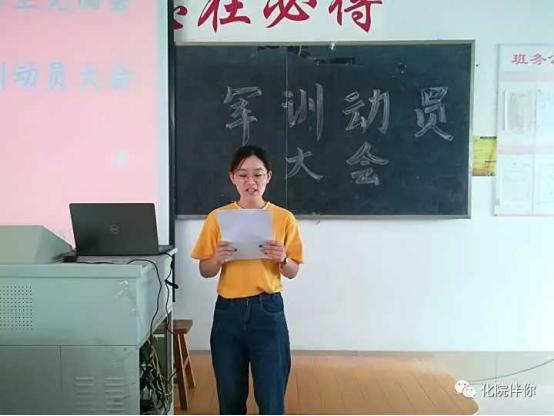 在必得
训动员大会
军训动员
大会
班务公
化院伴你